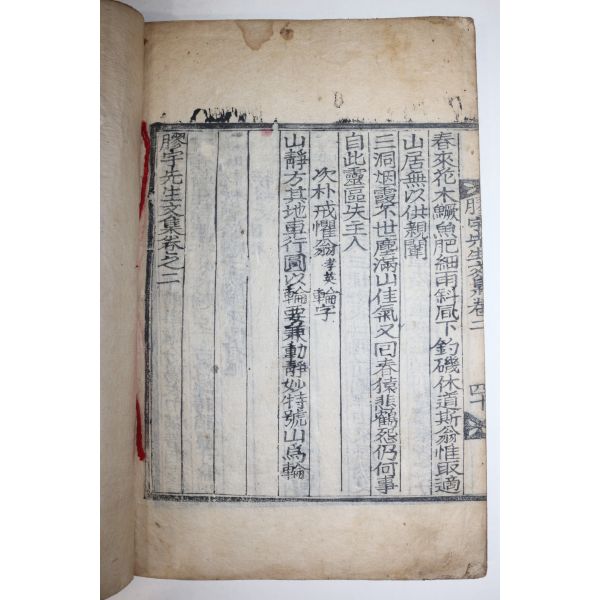 膠宇先生文集卷二 四十
春來花木鱖魚肥細雨斜風下釣磯休道斯翁惟取適
山居無以供親闈
三洞烟霞不世塵滿山佳氣又回春猿悲鶴怨仍何事
自此靈區失主人
次朴戒懼翁孝英輪字
山靜方其地車行圓以輪要兼動靜妙特號山爲輪
膠宇先生文集卷之二